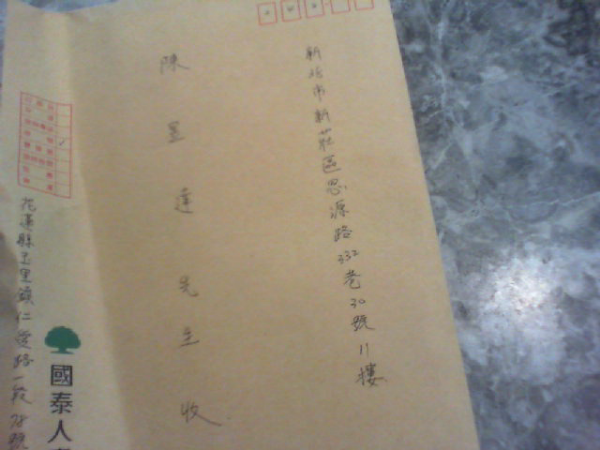 新北市新莊區思源路332巷30號11樓
陳昱達先生收
國泰人
花蓮縣玉里鎮仁愛路一段78號